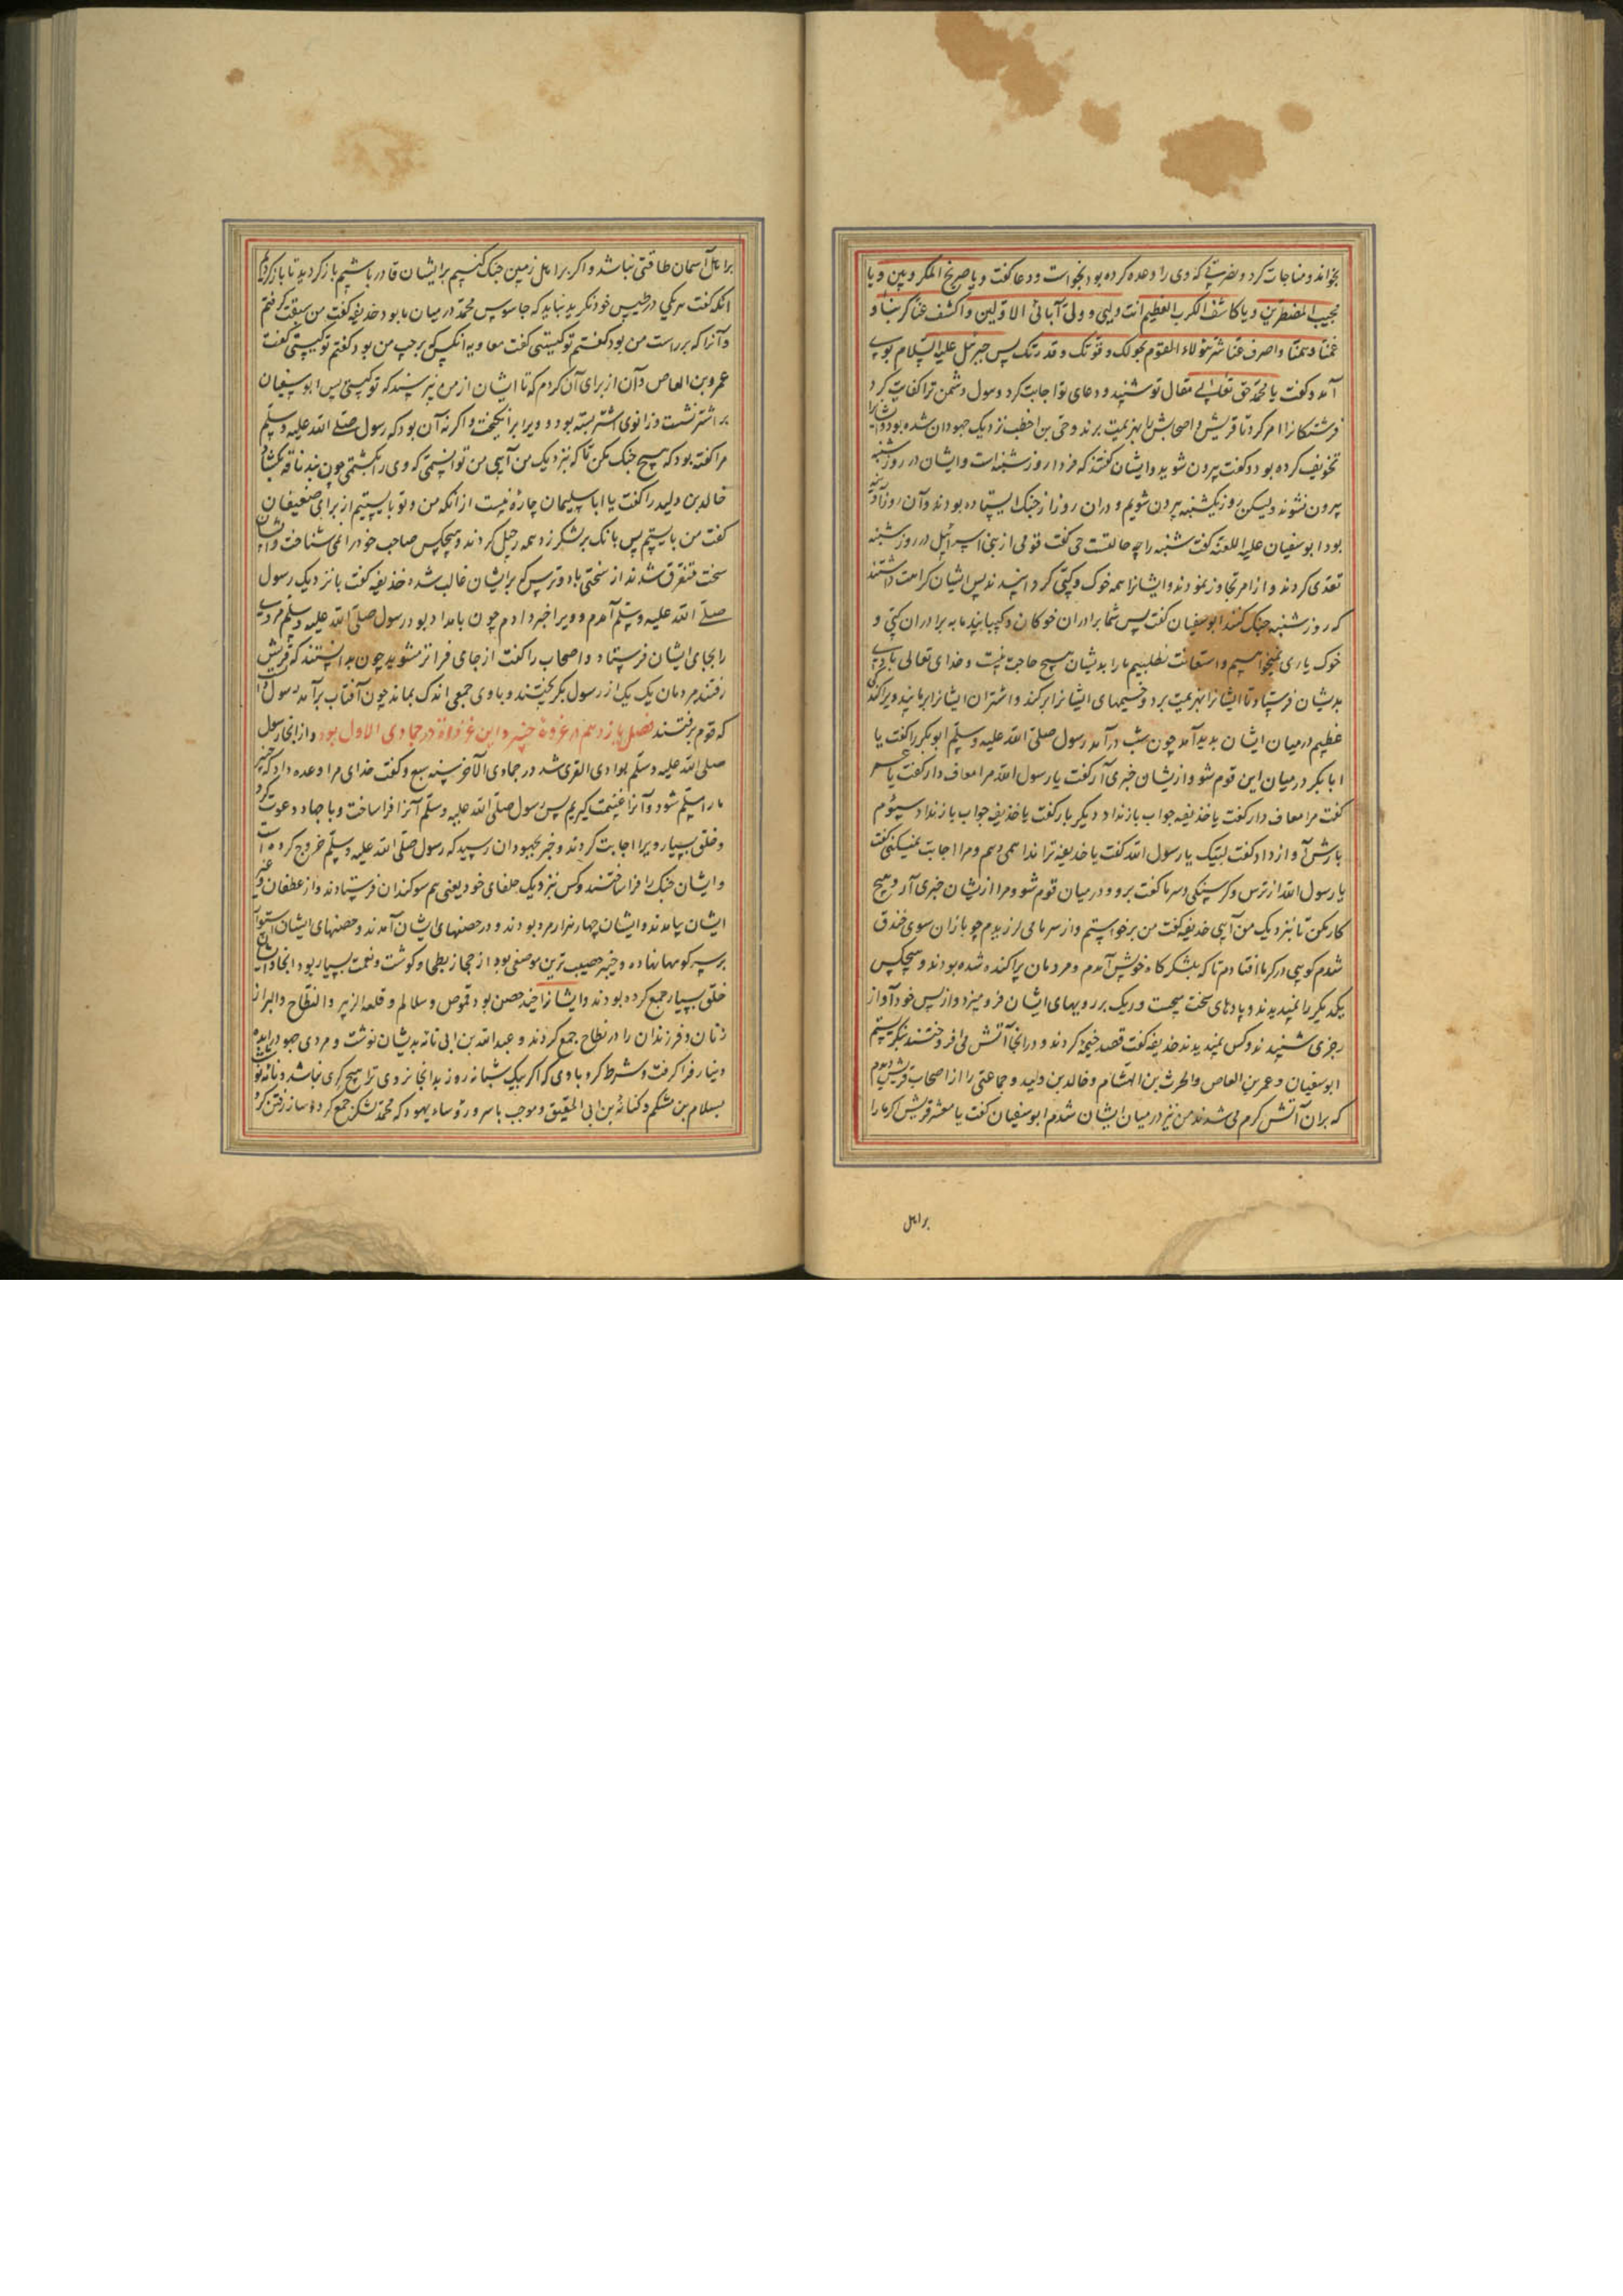 بخواند و مناجات کرد و نصرتی که وی را وعده کرده بود بخواست و دعا گفت و یا صریخ المکروبین و یا
مجیب المضطرین و یا کاشف الکرب العظیم انت ولیی و ولی آبائی الاولین و اکشف عنا کربنا و
غمنا و همنا واصرف عنا شر هؤلاء القوم بحولک و قوتک و قدرتک پس جبرئیل علیه السلام بوی
آمد و گفت یا محمد حق تعالی مقال تو شنید و دعای تو اجابت کرد و هول دشمن ترا کفایت کرد
فرشتکانرا امر کرد تا قریش و اصحابش را بهزیمت برند و حی بن اخطب نزدیک جهودان شده بود و ایشانرا
تخویف کرده بود و گفت بیرون شوید و ایشان گفتند که فردا روز شنبه است و ایشان در روز شنبه
بیرون نشوند ولیکن روز یکشنبه بیرون شویم و دران روز از جنک ایستاده بودند و آن روز آدینه
بود ابوسفیان علیه اللعنه گفت شنبه را چه حالتست حی گفت قومی از بنی اسرائیل در روز شنبه
تعدی کردند و از امر تجاوز نمودند و ایشانرا همه خوک و کپی گردانیدند پس ایشان کراهت داشتند
که روز شنبه جنک کنند ابوسفیان گفت پس شما برادران خوکان و کپیانید ما به برادران کپی و
خوک یاری نمیخواهیم و استعانت نطلبیم ما را بدیشان هیچ حاجت نیست و خدای تعالی بادی
بدیشان فرستاد تا ایشانرا بهزیمت برد و خیمهای ایشانرا برکند و اشتران ایشانرا برمانید و پراکندگی
عظیم در میان ایشان بدید آمد چون شب درآمد رسول صلی الله علیه وسلم ابوبکر را گفت یا
ابابکر در میان این قوم شو و ازیشان خبری آر گفت یا رسول الله مرا معاف دار گفت یا عمر
گفت مرا معاف دار گفت یا حذیفه جواب بازنداد دیگر بار گفت یا حذیفه جواب بازنداد سیوم
بارش آواز داد گفت لبیک یا رسول الله گفت یا حذیفه ترا ندا همی دهم و مرا اجابت نمیکنی گفت
یا رسول الله از ترس و گرسنگی و سرما گفت برو و در میان قوم شو و مرا ازیشان خبری آر و هیچ
کار مکن تا بنزدیک من آیی حذیفه گفت من برخواستم و از سرما می لرزیدم چو بازان سوی خندق
شدم گویی در گرما افتادم تا که بلشکرگاه خویش آمدم و مردمان پراکنده شده بودند و هیچکس
یکدیگر را نمیدیدند و بادهای سخت میجست و ریک بر رویهای ایشان فرو میزد و از پس خود آواز
رجزی شنیدند و کس نمیدیدند حذیفه گفت قصد خیمه کردند و در انجا آتش می افروختند بنگریستم
ابوسفیان و عمر بن العاص والحرث بن الهشام و خالد بن ولید و جماعتی را از اصحاب قریش دیدم
که بران آتش گرم می شدند من نیز در میان ایشان شدم ابوسفیان گفت یا معشر قریش اگر ما را
براهل
براهل آسمان طاقتی نباشد و اگر براهل زمین جنک کنیم برایشان قادر باشیم بازگردید تا بازگردیم
انکه گفت هر یکی در جلیس خود نگرید نباید که جاسوس محمد در میان ما بود حذیفه گفت من سبقت گرفتم
و آنرا که بر راست من بود گفتم تو کیستی گفت معاویه انکس که بر چپ من بود گفتم تو کیستی گفت
عمرو بن العاص و آن از برای آن کردم که تا ایشان از من نپرسند که تو کیستی پس ابوسفیان
بر اشتر نشست و زانوی اشتر بسته بود و ویرا برانگیخت و اگر نه آن بود که رسول صلی الله علیه وسلم
مرا گفته بود که هیچ جنک مکن تا که بنزدیک من آیی من توانستمی که وی را بکشتمی چون بند ناقه بگشاد
خالد بن ولید را گفت یا ابا سلیمان چاره نیست از انکه من و تو بایستیم از برای ضعیفان
گفت من بایستم پس بانک بر لشکر زد همه رحیل کردند و هیچکس صاحب خود را نمی شناخت و ایشان
سخت متفرق شدند از سختی باد و ترس که برایشان غالب شده حذیفه گفت بانزدیک رسول
صلی الله علیه وسلم آمدم و ویرا خبر دادم چون بامداد بود رسول صلی الله علیه وسلم مردی
را بجای ایشان فرستاد و اصحاب را گفت از جای فراتر مشوید چون بدانستند که قریش
رفتند مردمان یک یک از رسول بگریختند و باوی جمعی اندک بماند چون آفتاب برآمد رسول
که قوم برفتند فصل یازدهم در غزوهٔ خیبر و این غزوات در جمادی الاول بود و از انجا رسول
صلی الله علیه وسلم بوادی القری شد در جمادی الآخر سنه سبع و گفت خدای مرا وعده داد که خیبر
ما را مسلم شود و آنرا غنیمت گیریم پس رسول صلی الله علیه وسلم آنرا فراساخت و با جهاد دعوت کرد
و خلق بسیار ویرا اجابت کردند و خبر بجهودان رسید که رسول صلی الله علیه وسلم خروج کرده است
و ایشان جنک را فراساختند و کس بنزدیک حلفای خود یعنی هم سوگندان فرستادند و از غطفان و غیر
ایشان بیامدند و ایشان چهار هزار مرد بودند و در حصنهای ایشان آمدند و حصنهای ایشان استوار
بر سر کوهها نهاده و خیبر خصیب ترین موضعی بود از حجاز بطعام و گوشت و نعمت بسیار بود انجا و
خلق بسیار جمع کرده بودند و ایشانرا چند حصن بود قموص و سلالم و قلعة الزبیر و النطاح و البراز
زنان و فرزندان را در نطاح جمع کردند و عبدالله بن ابی نامه بدیشان نوشت و مردی جهود را ده
دینار فرا گرفت و شرط کرد باوی که اگر بیک شبانه روز بدانجا نروی ترا هیچ کری نباشد و نامه نوشت
بسلام بن مشکم و کنانة بن ابی الحقیق و موجب یا سرور و ساد یهود که محمد لشکر جمع کرد و ساز رفتن کرد